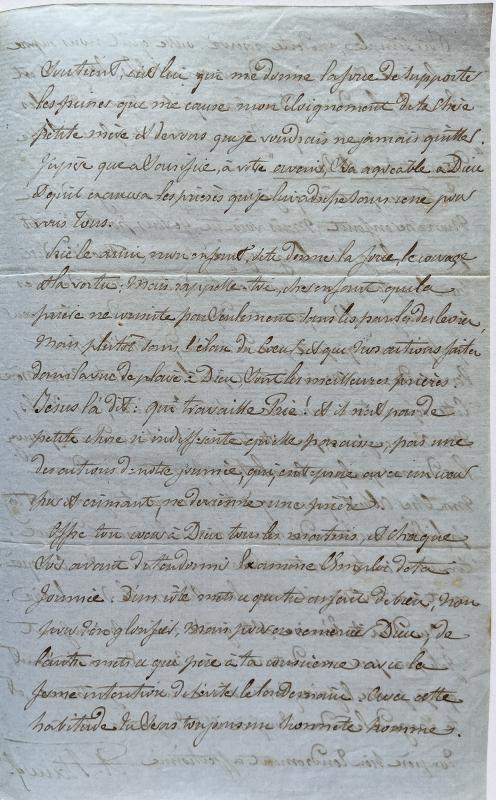 Soutient, c'est lui qui me donne la force de supporter
les peines que me cause mon éloignement de ta chère
petite mère et de vous que je voudrais ne jamais quitter.
J'espère que ce sacrifice, à votre avenir, sera agréable à Dieu
et qu'il exaucera les prières que je lui adresse sans cesse pour
vous tous.
Prie le aussi mon enfant, de te donner la force, le courage
et la vertu; mais, rappelle-toi, cher enfant que la
prière ne consiste pas seulement dans les paroles des lèvres,
mais plutôt dans l'élan du cœur et que nos actions faites
dans la vue de plaire à Dieu sont les meilleures prières
Jésus l'a dit: qui travaille Prie! et il n'est pas de
petite chose si indifférente qu'elle paraisse, pas une
des actions de notre journée, qui, entreprise avec un cœur
pur et aimant, ne devienne une prière.
Offre ton cœur à Dieu tous les matins, et chaque
soir avant de t'endormir Examine l'Emploi de ta
Journée. D'un côté mets ce que tu as fait de bien, non
pour t'en glorifier, mais pour en remercier Dieu; de
l'autre mets ce qui pèse à ta conscience avec la
ferme intention de l'éviter le lendemain. Avec cette
habitude tu seras toujours un honnête homme.